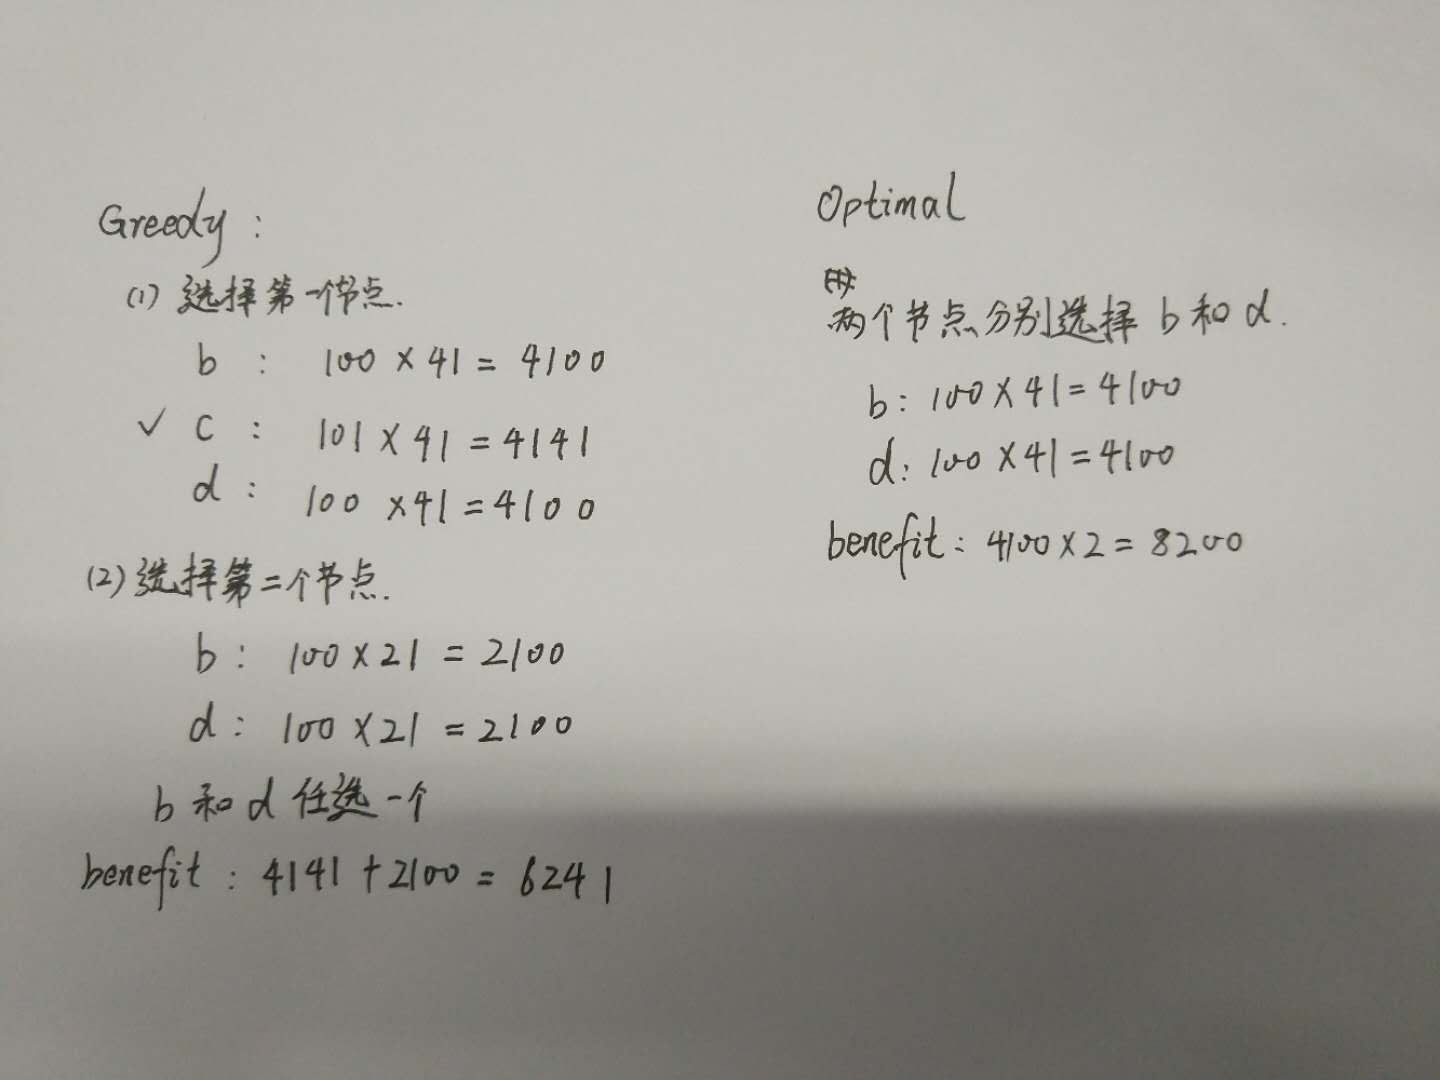 Greedy :
(1) 选择第一个节点.
b : 100 × 41 = 4100
✓ c : 101 × 41 = 4141
d : 100 × 41 = 4100
(2) 选择第二个节点.
b : 100 × 21 = 2100
d : 100 × 21 = 2100
b 和 d 任选一个
benefit : 4141 + 2100 = 6241
Optimal
两个节点分别选择 b 和 d.
b : 100 × 41 = 4100
d : 100 × 41 = 4100
benefit : 4100 × 2 = 8200